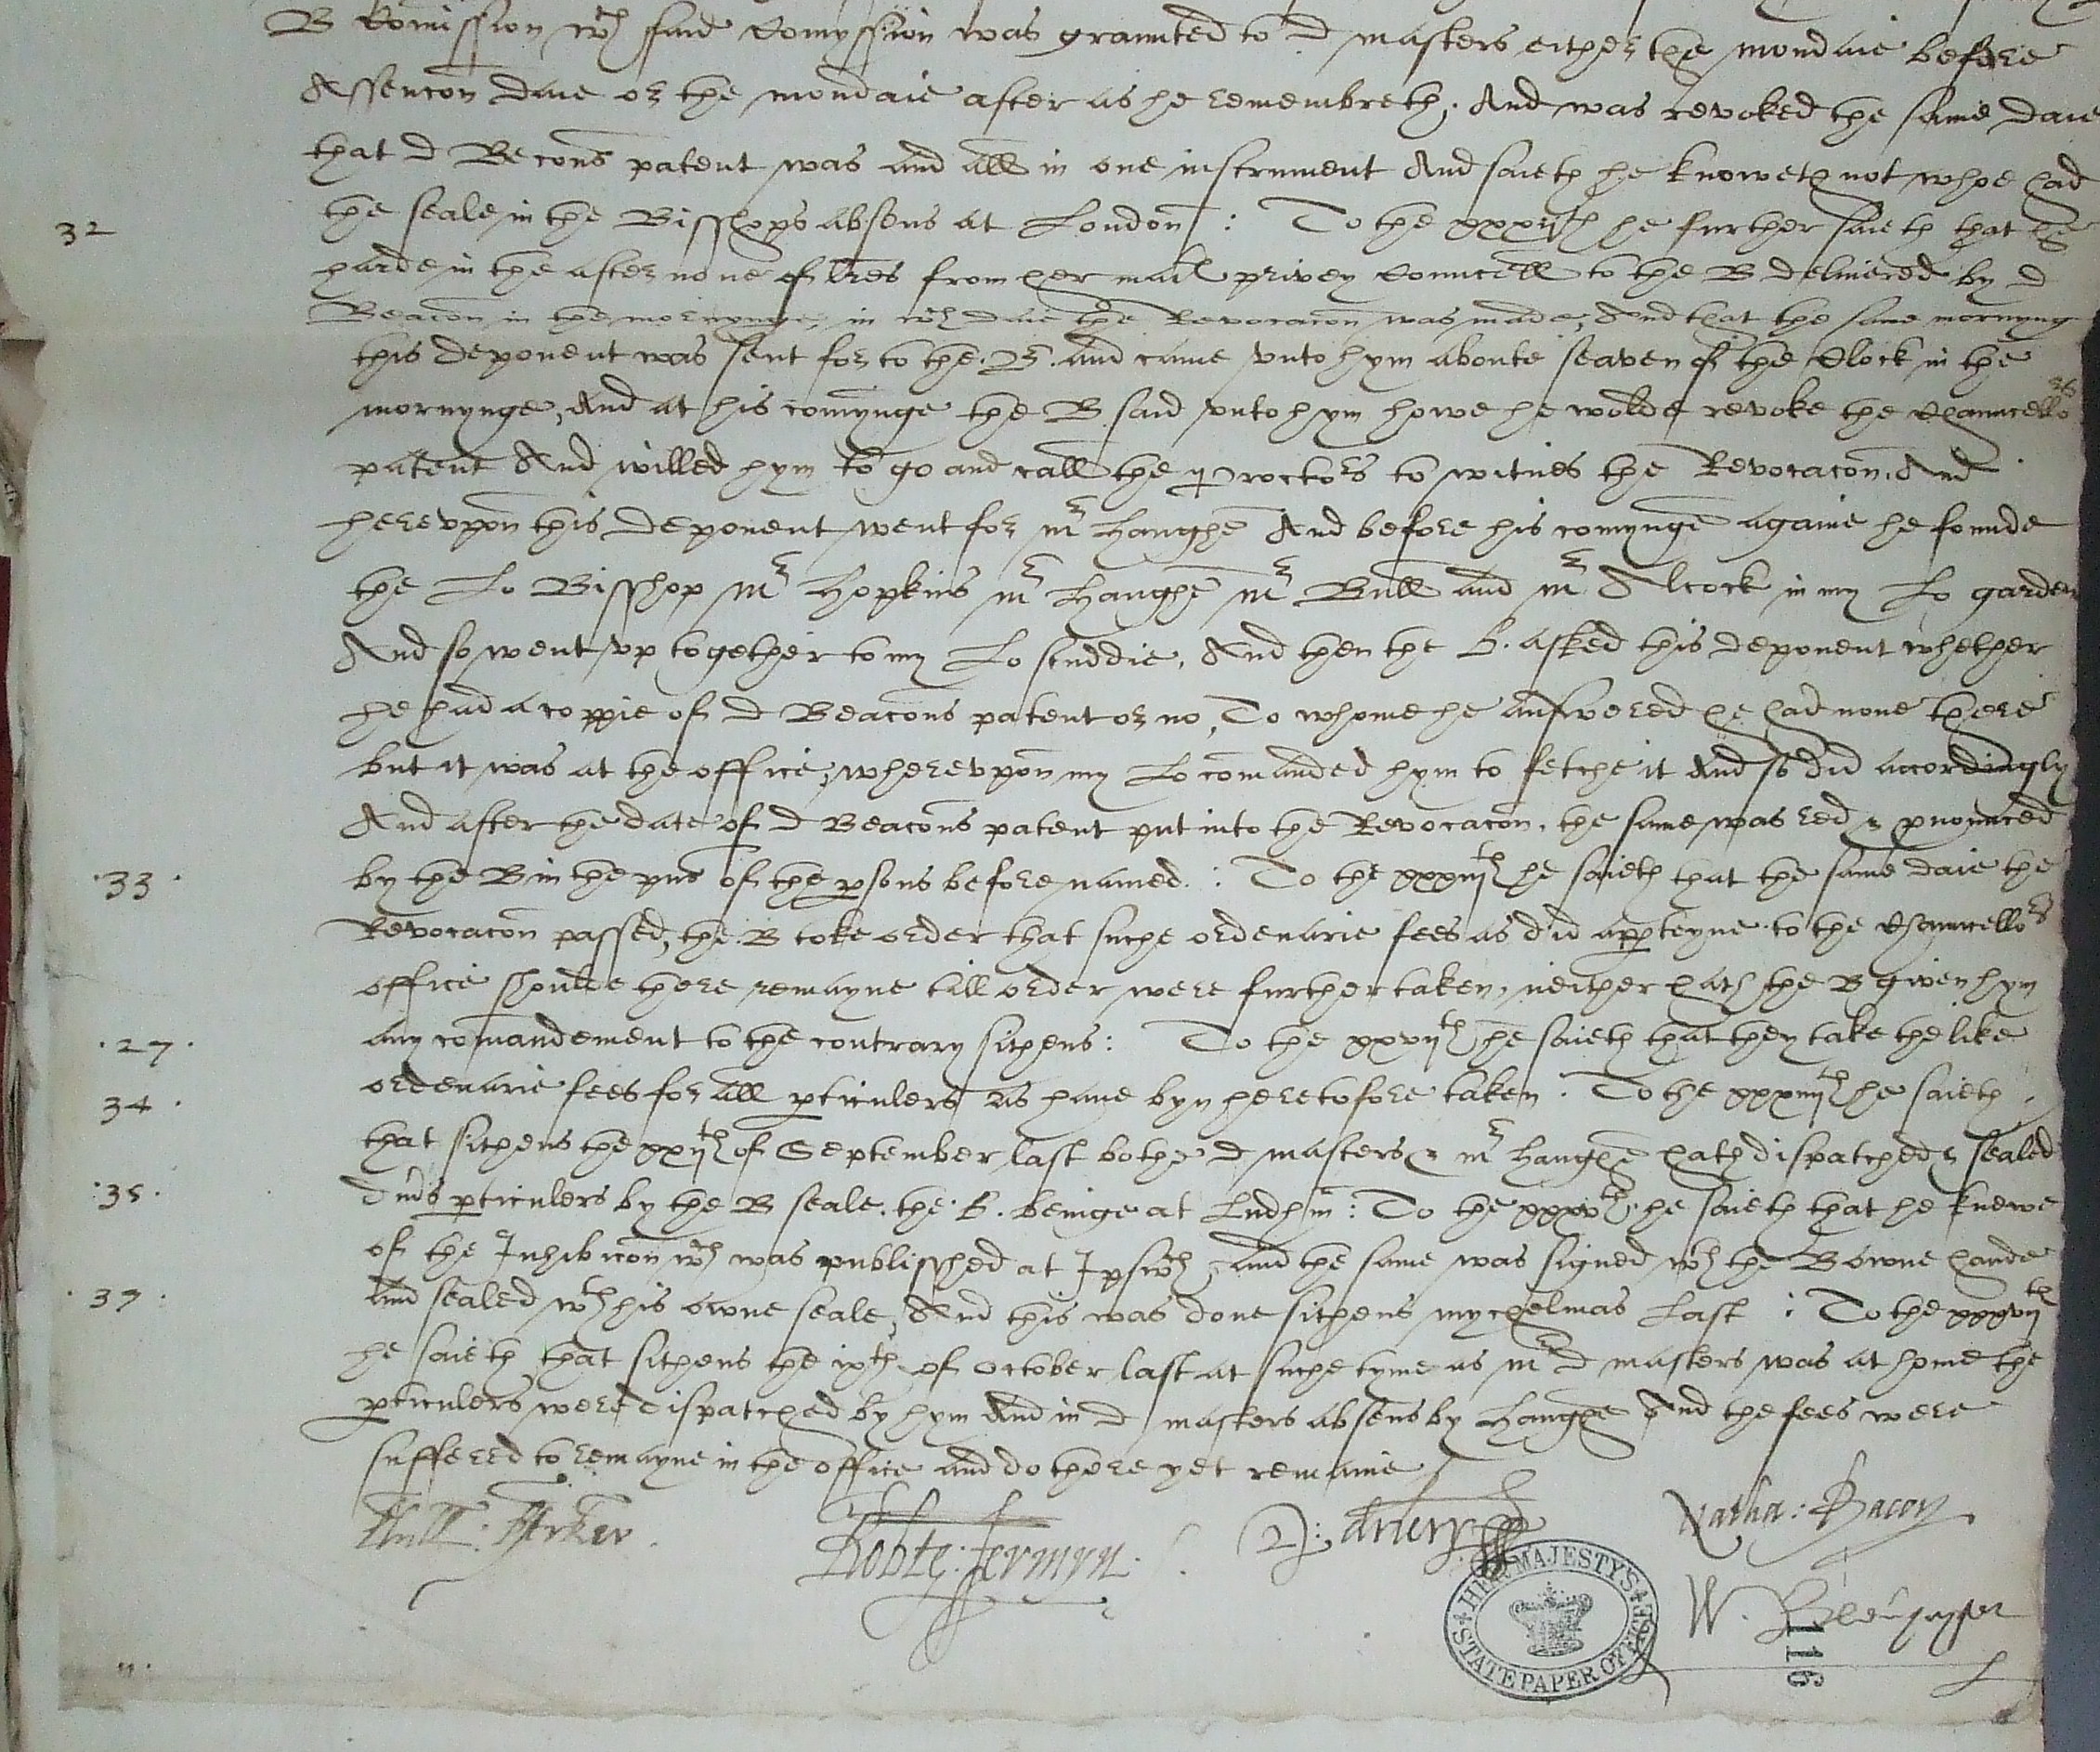 B Comission wch said Comyssion was graunted to D masters either the mondaie before
Assencon daie or the mondaie after as he remembreth, And was revoked the same daie
that D Becons patent was and all in one instrument And saieth he knoweth not whoe had
32 the seale in the Bisshops absens at London : To the xxxijth he further saieth that he
harde in the after none of lres from her mats privey Councell to the B delivered by D
Beacon in the mornynge, in wch daie the Revocacon was made, And that the same mornyng
this deponent was sent for to the .B. and came vnto hym aboute seaven of the Clock in the
mornynge, And at his comynge the B said vnto hym howe he wolde revoke the Chauncellors
patent And willed hym to go and call the proctors to witnes the Revocacon. And
herevppon this deponent went for mr Haughe And before his comynge againe he founde
the Lo Bisshop mr Hopkins mr Haughe mr Bull and mr Alcock in my Lo garden
And so went vp together to my Lo studdie, And then the B. asked this deponent whether
he had a coppie of D Beacons patent or no, To whome he answered he had none there
but it was at the office, wherevpon my Lo comanded hym to fetche it And so did accordingly
And after the date of D Beacons patent put into the Revocacon, the same was red & pnounced
33 by the B in the pns of the psons before named. : To the xxxiijth he saieth that the same daie the
Revocacon passed, the B toke order that suche ordenarie fees as did appteyne to the Chauncellors
office shoulde there remayne till order were further taken, neither hath the B given hym
27 any comandement to the contrary sithens : To the xxvijth he saieth that they take the like
34 ordenarie fees for all pticulers as have byn heretofore taken : To the xxxiiijth he saieth
that sithens the xxijth of September last bothe D masters & mr Haughe hath dispatched & sealed
35 diuˀs pticulers by the B seale, the .B. beinge at Ludhm : To the xxxvth he saieth that he knewe
of the Inhibicon wch was publisshed at Ipswch, and the same was signed wth the B owne hande
37 and sealed wth his owne seale, And this was done sithens mychelmas last : To the xxxvijth
he saieth that sithens the ixth of October last at suche tyme as mr D masters was at home the
pticulers were dispatched by hym And in D masters absens by Haughe And the fees were
suffered to remayne in the office and do there yet remaine
Robte: Jermyn.
Natha: Bacon
HER MAJESTY'S STATE PAPER OFFICE
116